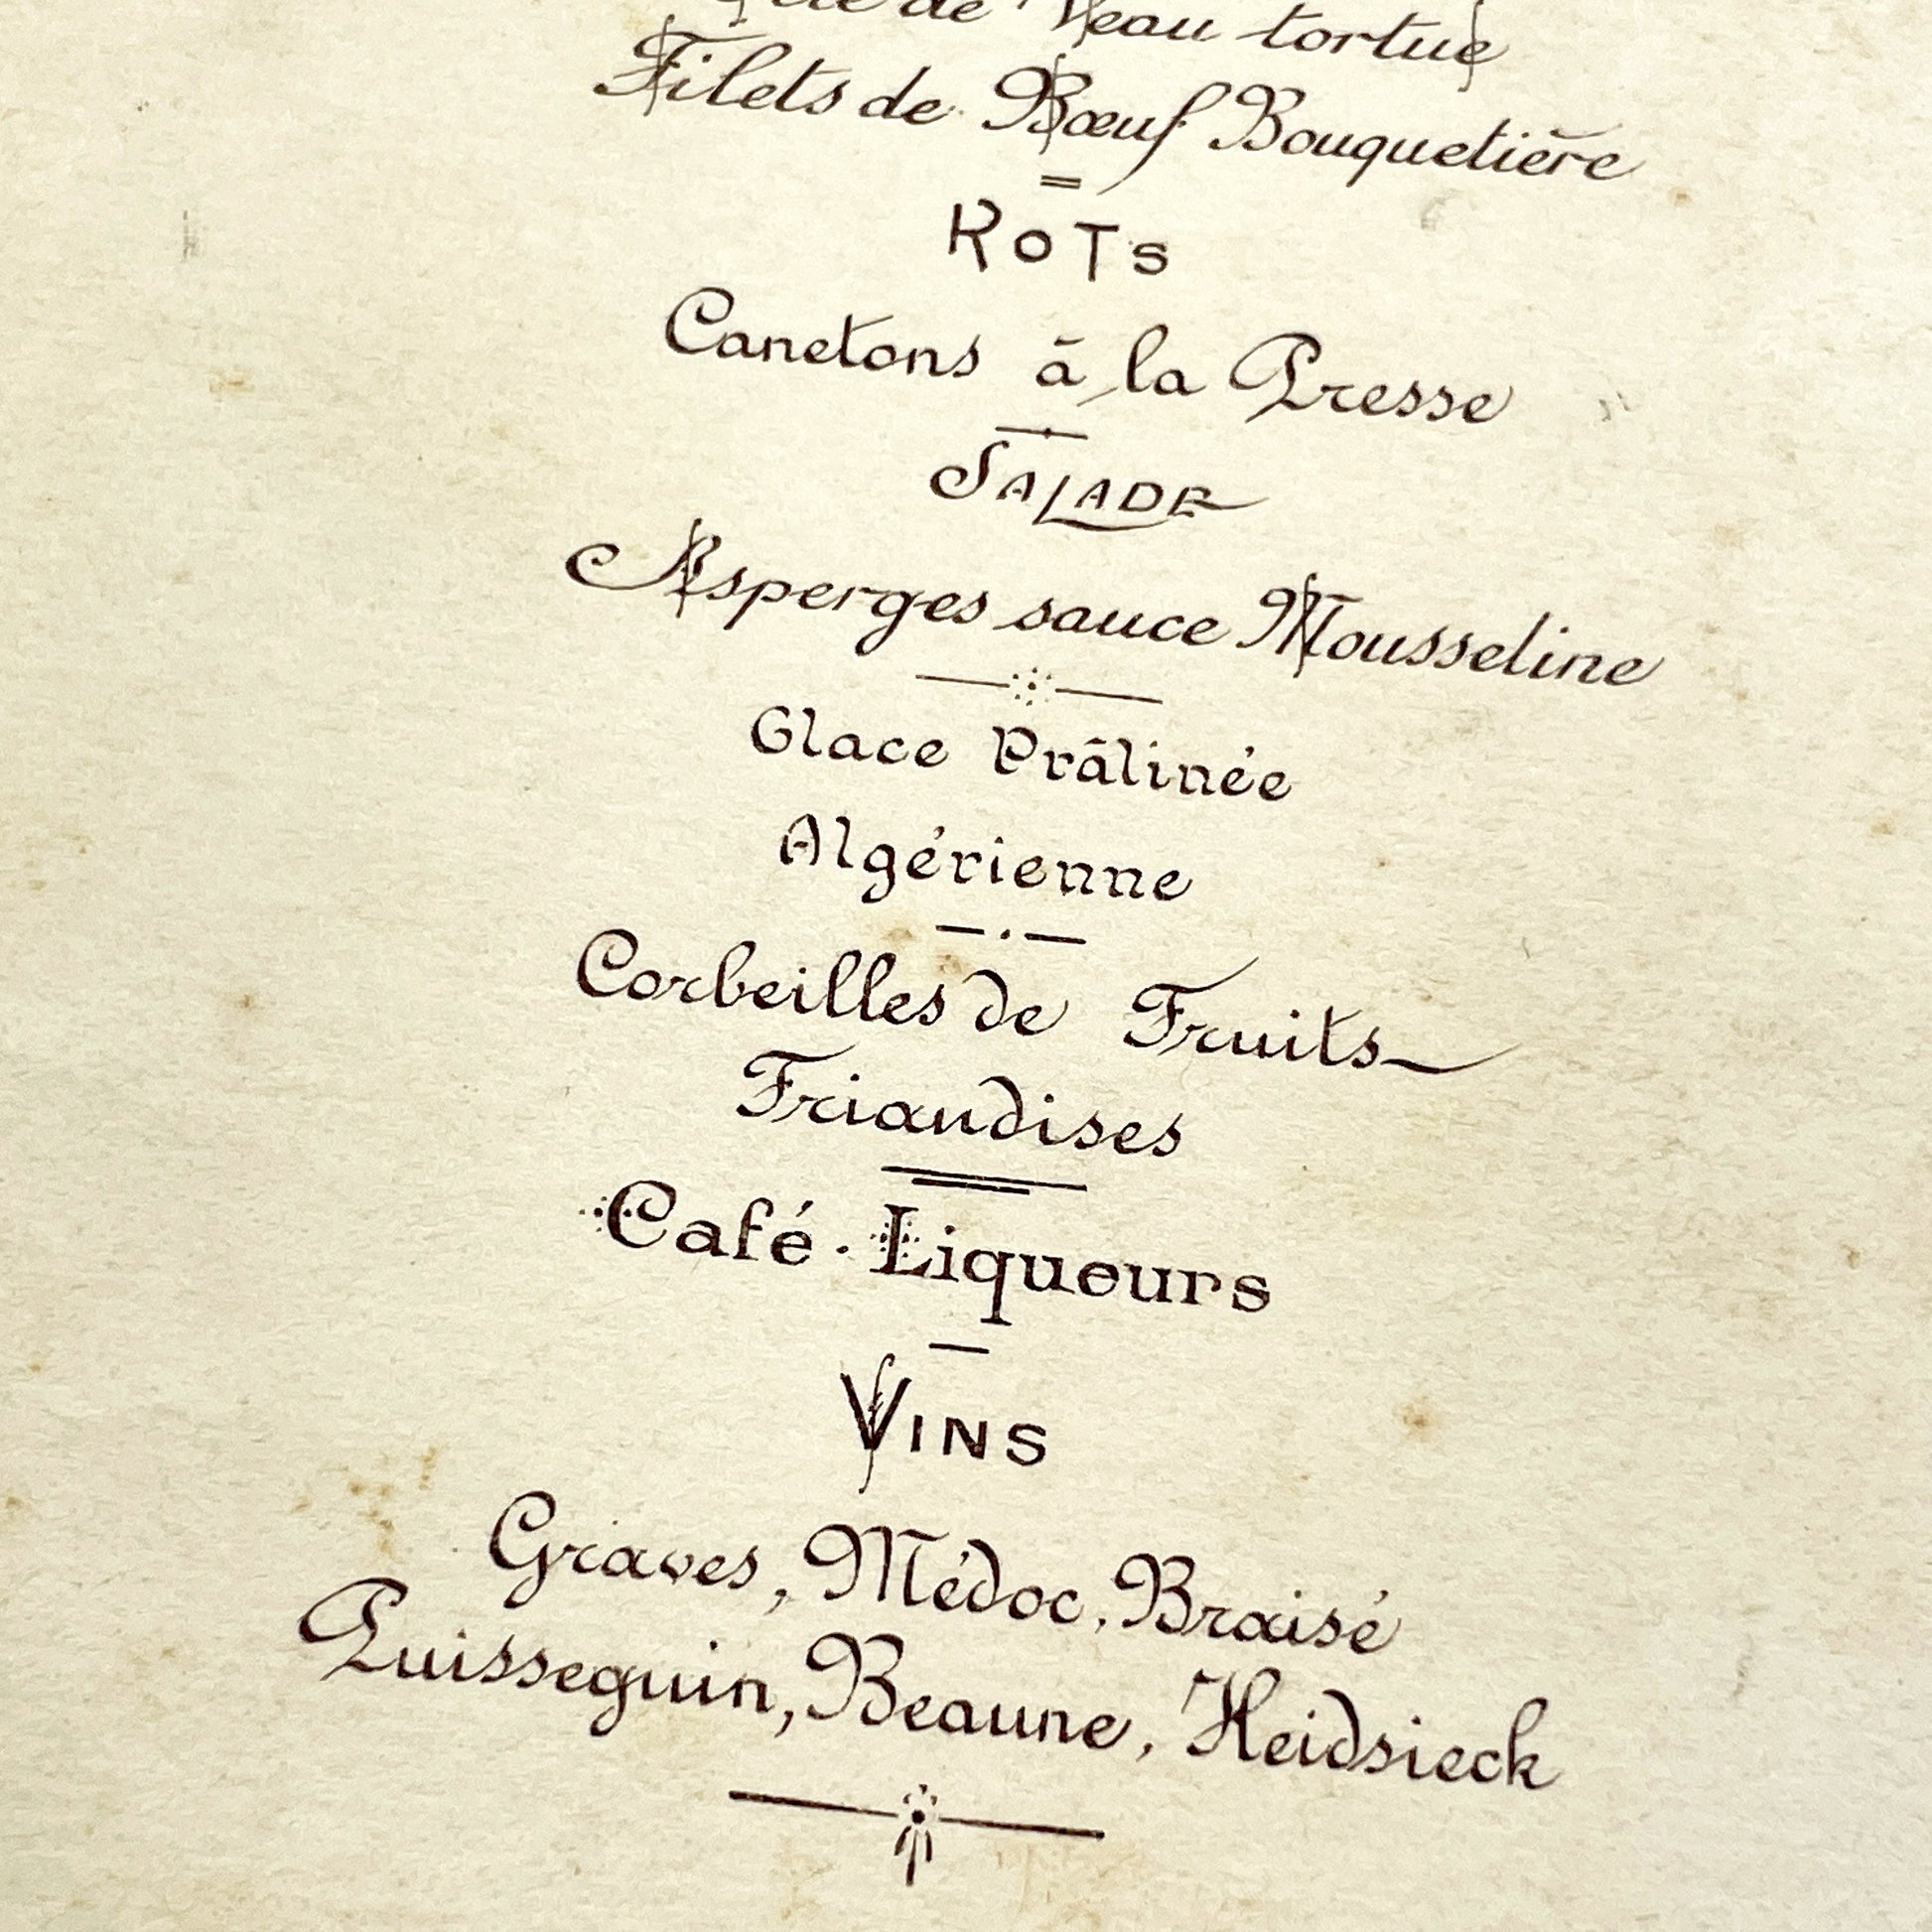 de Veau tortue
Filets de Bœuf Bouquetière
ROTS
Canetons à la Presse
SALADE
Asperges sauce Mousseline
Glace Prâlinée
Algérienne
Corbeilles de Fruits
Friandises
Café. Liqueurs
VINS
Graves, Médoc, Braisé
Puisseguin, Beaune, Heidsieck